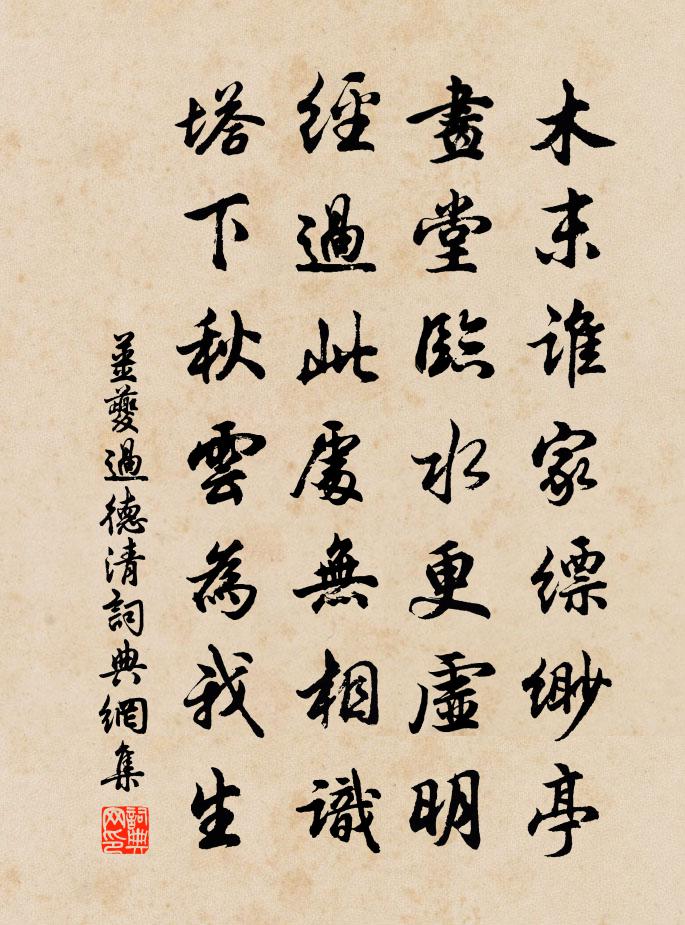 木末誰家縹緲亭
畫堂臨水更虛明
經過此處無相識
塔下秋雲為我生
姜夔過德清詞典網集
詞典網印